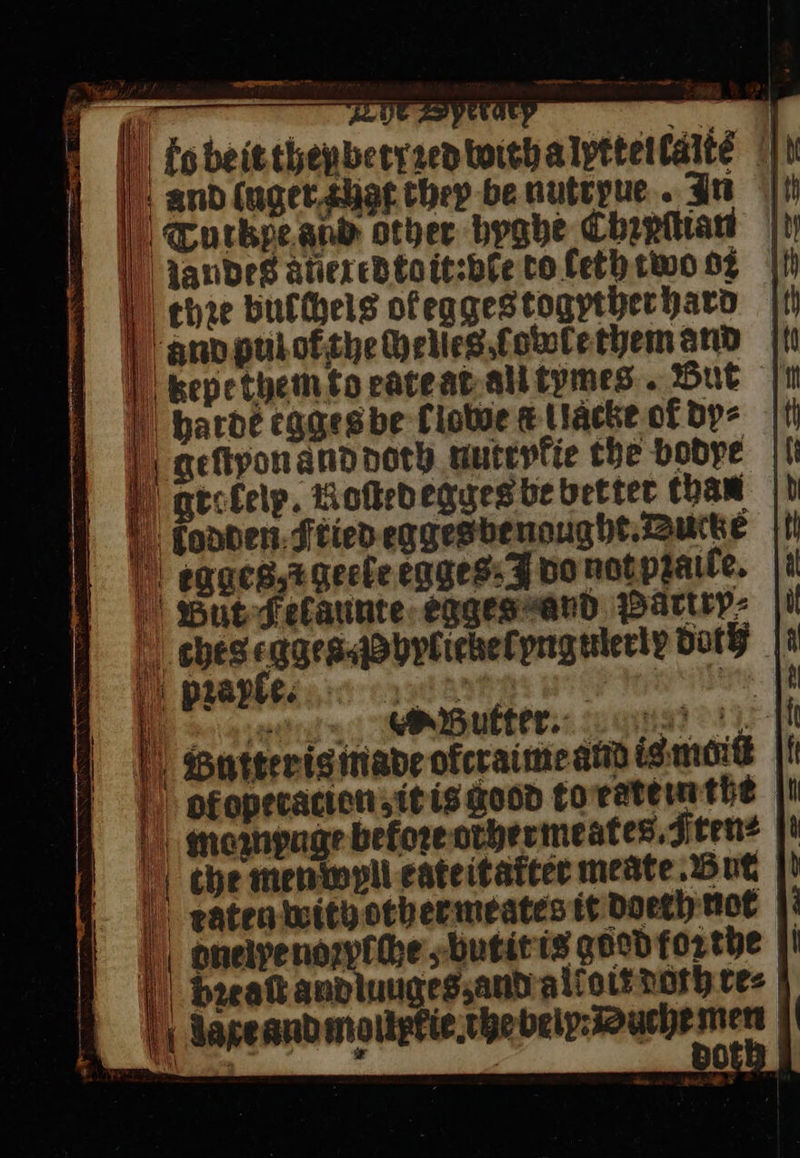 The Dyetary
so be it they be tryzed with a lyttel salte
and suger, than they be nutryue. In
Turkye and other hyghe Chrystian
landes anexed to it: vse to seth two or
thre busshels of egges togyther hard
and pul of the shelles, sowse them and
kepe them to eate at all tymes. But
harde egges be slowe & slacke of dy-
gestyon and doth nutryfie the bodye
grosely. Rosted egges be better than
sodden. Fried egges be nought. Ducke
egges, & geese egges, I do not praise.
But Fesaunte egges and Partry-
ches egges, Physicke syngulerly doth
prayse.
Butter.
Butter is made of craime and is moist
of operacion, it is good to eate in the
mornynge before other meates. Fren-
che men wyll eate it after meate. But
eaten with other meates it doeth not
onely norysshe, but it is good for the
breast and lunges, and also it doth re-
laxe and mollyfie the bely: Duche men
doth